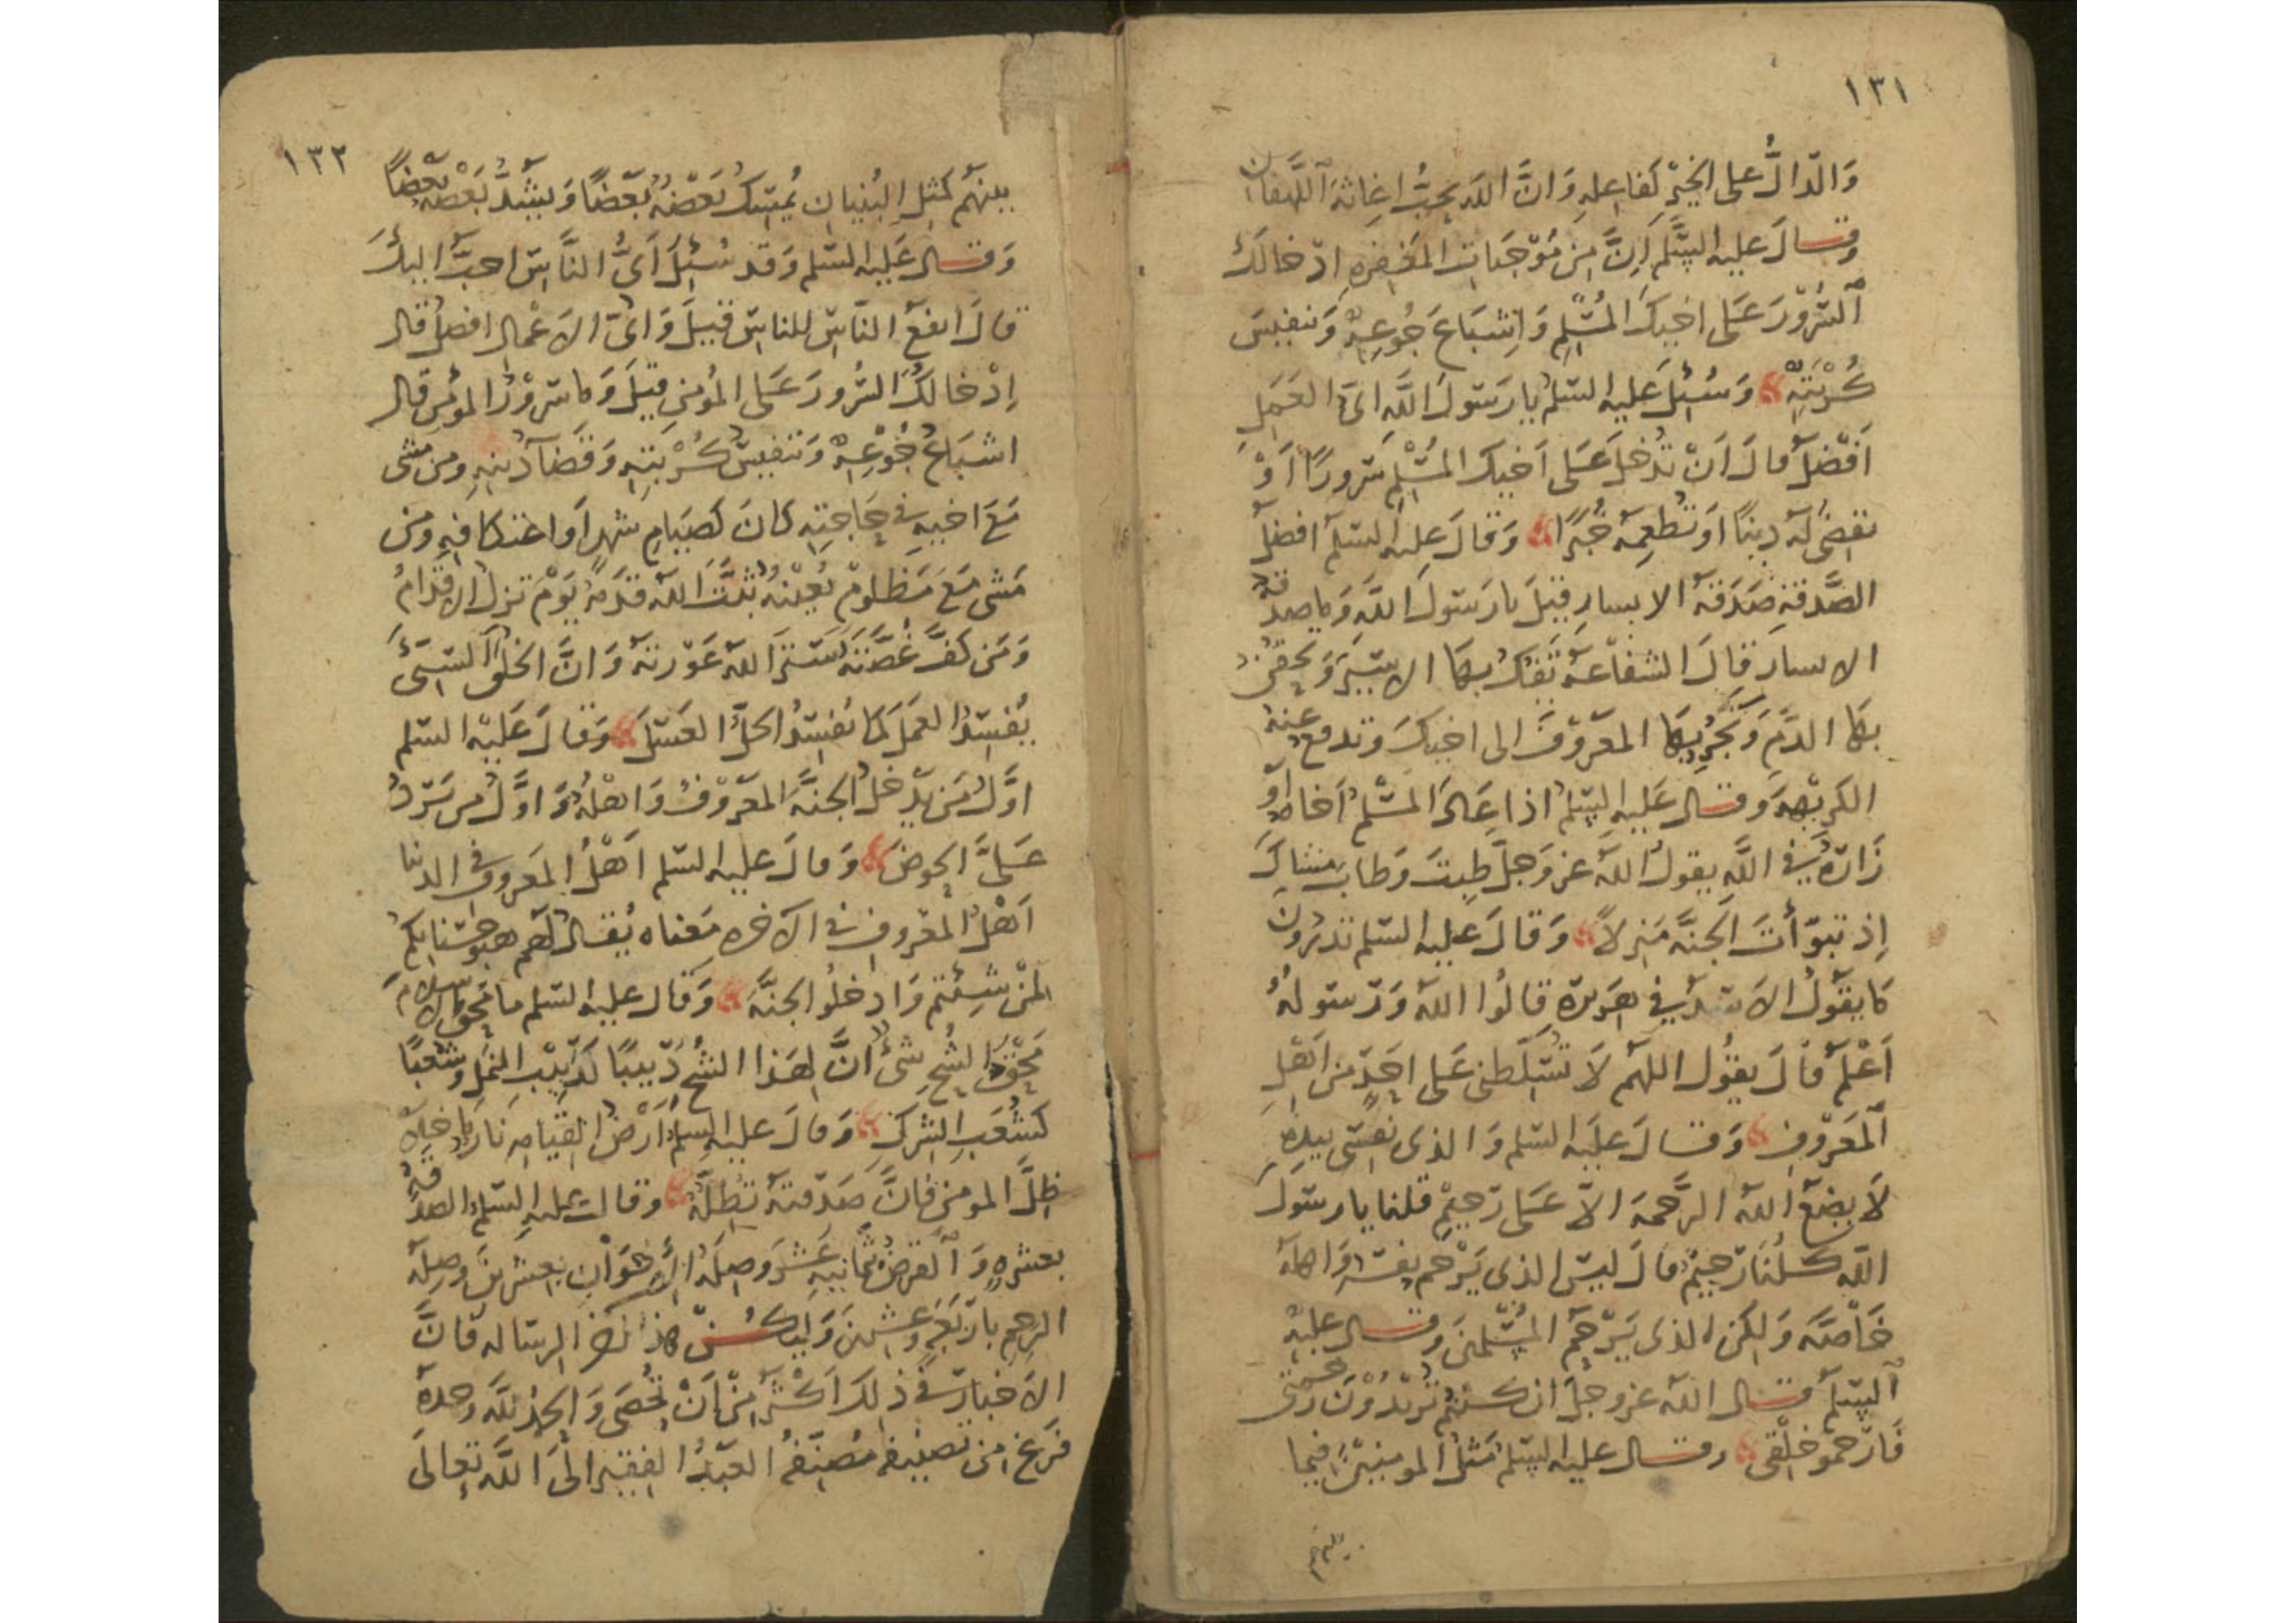 ١٣١
وَالدّالُّ على الخيْرِ كفاعلهِ وَانَّ اللهَ يحبُّ اغاثةَ اللَّهفان
وقال عليه السّلم اِنَّ من مُوْجبَاتِ المغفره ادخالكَ
السّرُوْرَ عَلى اخيكَ المُسْلِم وَاِشبَاعَ جُوعِهِ وَتنفيسَ
كُرْبَتِهِ وَسُئِلَ عليه السّلم يا رَسُولَ اللَّه اىّ العَمَلِ
اَفضلُ قالَ اَنْ تُدْخلَ عَلى اَخيكَ المُسْلمِ سرورًا اَوْ
تقضىَ لَهُ دينًا اَوتُطعِمهُ خُبزًا وَقالَ عليه السّلم افضلُ
الصَّدقةِ صَدَقةُ الاسارِ قيلَ يا رَسُولَ اللَّه وَما صدقة
الاسارِ قالَ الشفاعةُ تَفكُّ بهَا الاسِيْرَ وَتحقنُ
بهَا الدَّمَ وَتجُرّ بهَا المعْرُوْفَ الى اخيكَ وَتدفع عنه
الكرِيْههَ وقال عَليهِ السّلم اذا عَادَ المسْلم اَخاه اَو
زَارَهُ في اللَّهِ يقولُ اللهُ عز وَجلَّ طِبتَ وَطابَ ممشاكَ
اِذ تبوّأتَ الجنَّهَ مَنزِلاً وَقالَ عليه السّلم تدرون
مَا يقَولُ الاَسَدُ في هَرِيرِه قالُوا اللهُ وَرَسُولهُ
اَعْلَمُ قالَ يقُول اللهم لاَ تُسَلّطني عَلى احَدٍ من اَهْلِ
المعرُوْفِ وَقالَ عليَه السّلم وَالذى نفسى بيدِه
لاَ يضَعُ اللهُ الرَّحمةَ الاّ عَلى رَحِيْمٍ قلنا يا رسولَ
اللَّه كلُنا رَحِيْمٌ قالَ ليسَ الذى يَرْحم نفسَه وَاهلهُ
خَاصّهً وَلكن الذى يَرْحَمُ المُسلمينَ وقال عليه
السّلم قال الله عز وجلّ ان كنتم تُرِيْدُوْنَ رحمتى
فَارْحموْا خلْقى وقال عليه السّلم مَثلُ المومنيْنَ فيما
بينهم
١٣٢
بينهُم كمثلِ البُنيان يُمسِكُ بَعْضُهُ بَعْضًا وَيشدُّ بَعْضه بعضًا
وَقال عَليه السّلم وَقد سُئِلَ اَىُّ النَّاسِ احبُّ اليكَ
قالَ انفعُ النّاسِ للناسِ قيلَ وَاىّ الاَعْمالِ افضلُ قال
اِدْخالكَ السُّرورَ عَلى المؤمنِ قيلَ وَما سرُوْرُ المؤمنِ قال
اشبَاعُ جُوْعِهِ وَتنفيسُ كُرْبَتِهِ وَقضَآءُ دينهِ ومن مشى
مَعَ اخيهِ فى حَاجتِهِ كانَ كصِيَامِ شهرٍ اَو اعتكافهِ ومن
مَشى مَعَ مَظلوْمٍ يُعِيْنهُ ثبّتَ اللهُ قدَمهُ يَوْمَ تزلُ الاقدامُ
وَمَن كفَّ غَضَبَهُ سَتَرَ اللهُ عَوْرتهُ وَانَّ الخلُقَ السّيئَ
يُفْسِدُ العمَلَ كمَا يُفسِدُ الخلُّ العَسَلَ وَقالَ عَليْه السّلم
اوَّلُ مَن يدْخلُ الجنَّهَ المعْرُوْفُ وَاهْلُهُ وَاوَّلُ من يَرِدُ
عَلىَّ الحوضَ وَقالَ عليه السّلم اَهْلُ المعَروفِ فى الدنيا
اَهْلُ المعْروفِ فى الاَخره مَعناه يُقال لَهُم هبوا حسناتكُم
لمَنْ شِئتم وَادخلُوا الجنَّهَ وَقال عليه السّلم ما مَحقَ الاسلامَ
مَحْقَ الشُّحِ شئٌ انَّ لهَذا الشُحِ دَّبيبًا كدَبِيْبِ النمل وشُعَبًا
كشُعَبِ الشركِ وَقالَ عليه السّلم اَرْضُ القيامهِ نارٌ مَا خلاَ
ظِلَّ المومنِ فانَّ صَدَقتهُ تُظِلّهُ وقالَ عليهِ السّلم الصدقة
بعشرهٍ وَالقرضُ بثمانيهِ عَشرَ وَصِلهُ الإِخْوَانِ بعشرينَ وَصِلهُ
الرحِمِ بارْبَعهٍ وَعشرينَ وَليكنْ هذا اخر الرسَاله فَانَّ
الاَخبارَ في ذلِكَ اَكثرُ مِنْ اَنْ تُحْصَى وَالحمدُ للَّه وَحدهُ
فرَغ من تصنيفه مُصَنّفُهُ العَبْدُ الفقيرُ الَى اللَّهِ تعالَى